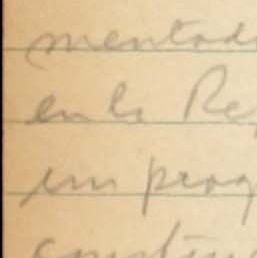 mentad
en la Re
un prog
constru